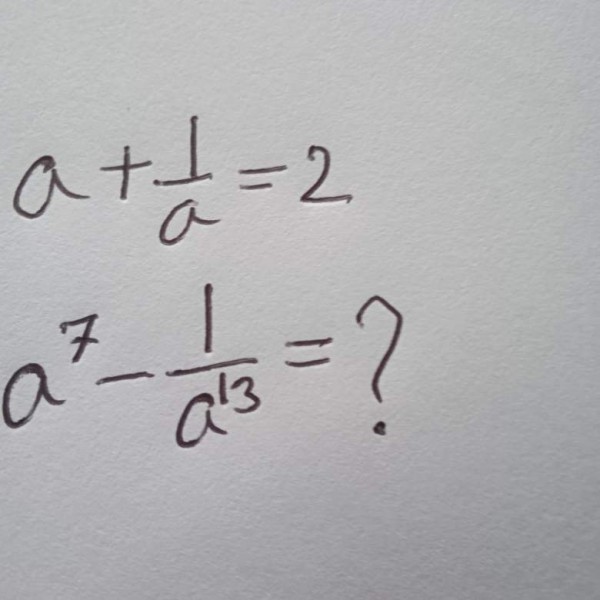 a + 1/a = 2
a⁷ - 1/a¹³ = ?